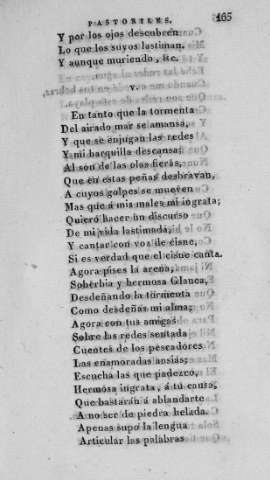 PASTORILES. 165
Y por los ojos descubren
Lo que los suyos lastiman.
Y aunque muriendo, &c.
V.
En tanto que la tormenta
Del airado mar se amansa,
Y que se enjugan las redes
Y mi barquilla descansa;
Al son de las olas fieras,
Que en estas peñas desbravan,
A cuyos golpes se mueven
Mas que á mis males mi ingrata;
Quiero hacer un discurso
De mi vida lastimada,
Y cantar con voz de cisne,
Si es verdad que el cisne canta.
Agora pises la arena,
Soberbia y hermosa Glauca,
Desdeñando la tormenta
Como desdeñas mi alma;
Agora con tus amigas
Sobre las redes sentada
Cuentes de los pescadores
Las enamoradas ansias;
Escucha las que padezco,
Hermosa ingrata, á tu causa,
Que bastarán á ablandarte
A no ser de piedra helada.
Apenas supo la lengua
Articular las palabras